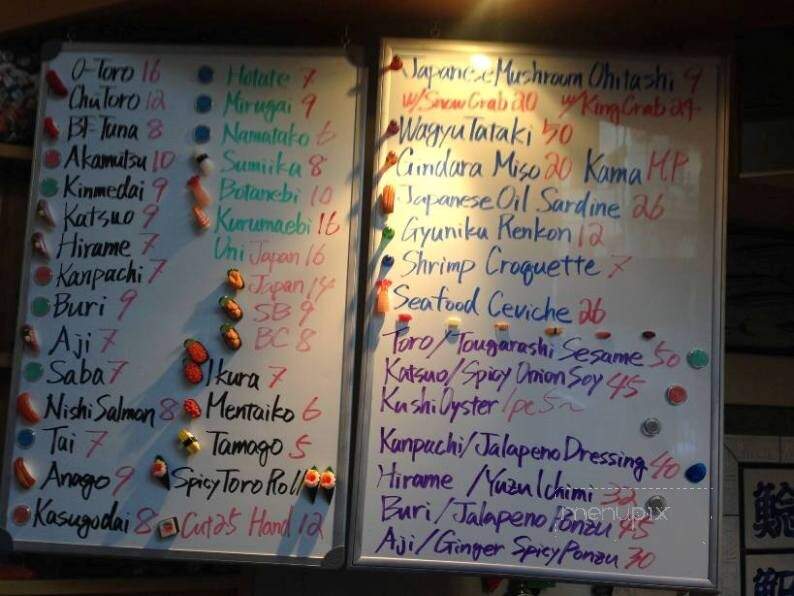 O-Toro 16
ChuToro 12
BF Tuna 8
Akamutsu 10
Kinmedai 9
Katsuo 9
Hirame 7
Kanpachi 7
Buri 9
Aji 7
Saba 7
Nishi Salmon 8
Tai 7
Anago 9
Kasugodai 8
Hotate 7
Mirugai 9
Namatako 6
Sumiika 8
Botanebi 10
Kurumaebi 16
Uni Japan 16
Japan 14
SB 9
BC 8
Ikura 7
Mentaiko 6
Tamago 5
Spicy Toro Roll
Cut 25 Hand 12
Japanese Mushroom Ohitashi 9
w/Snow Crab 20 w/King Crab 24
Wagyu Tataki 50
Gindara Miso 20 Kama M.P
Japanese Oil Sardine 26
Gyuniku Renkon 12
Shrimp Croquette 7
Seafood Ceviche 26
Toro/Tougarashi Sesame 50
Katsuo/Spicy Onion Soy 45
Kushi Oyster 1pc 5~
Kanpachi/Jalapeno Dressing 40
Hirame /Yuzu Ichimi 32
Buri/Jalapeno Ponzu 45
Aji/Ginger Spicy Ponzu 30
menupix